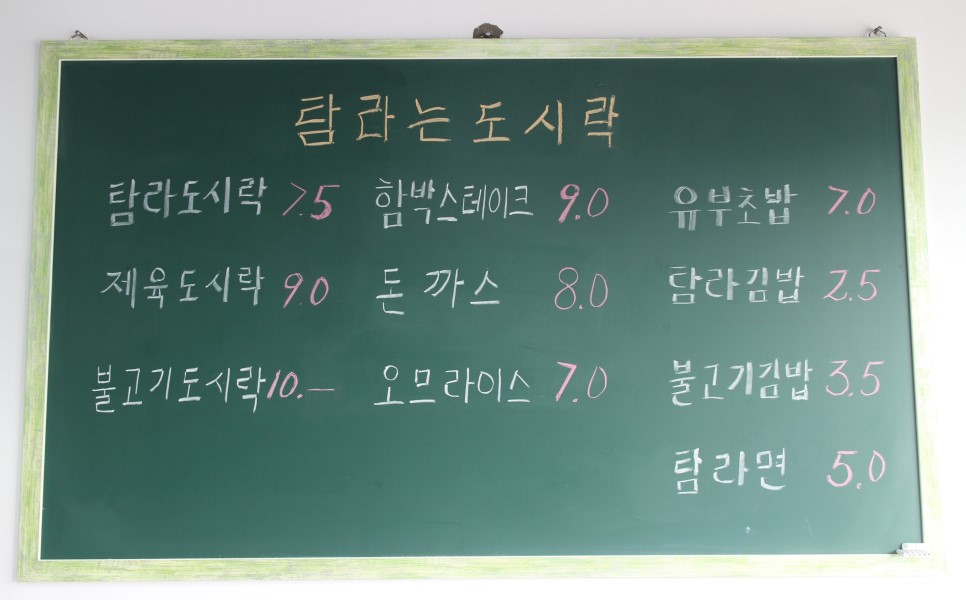 탐라는도시락
탐라도시락 7.5 함박스테이크 9.0 유부초밥 7.0
제육도시락 9.0 돈까스 8.0 탐라김밥 2.5
불고기도시락 10.— 오므라이스 7.0 불고기김밥 3.5
탐라면 5.0